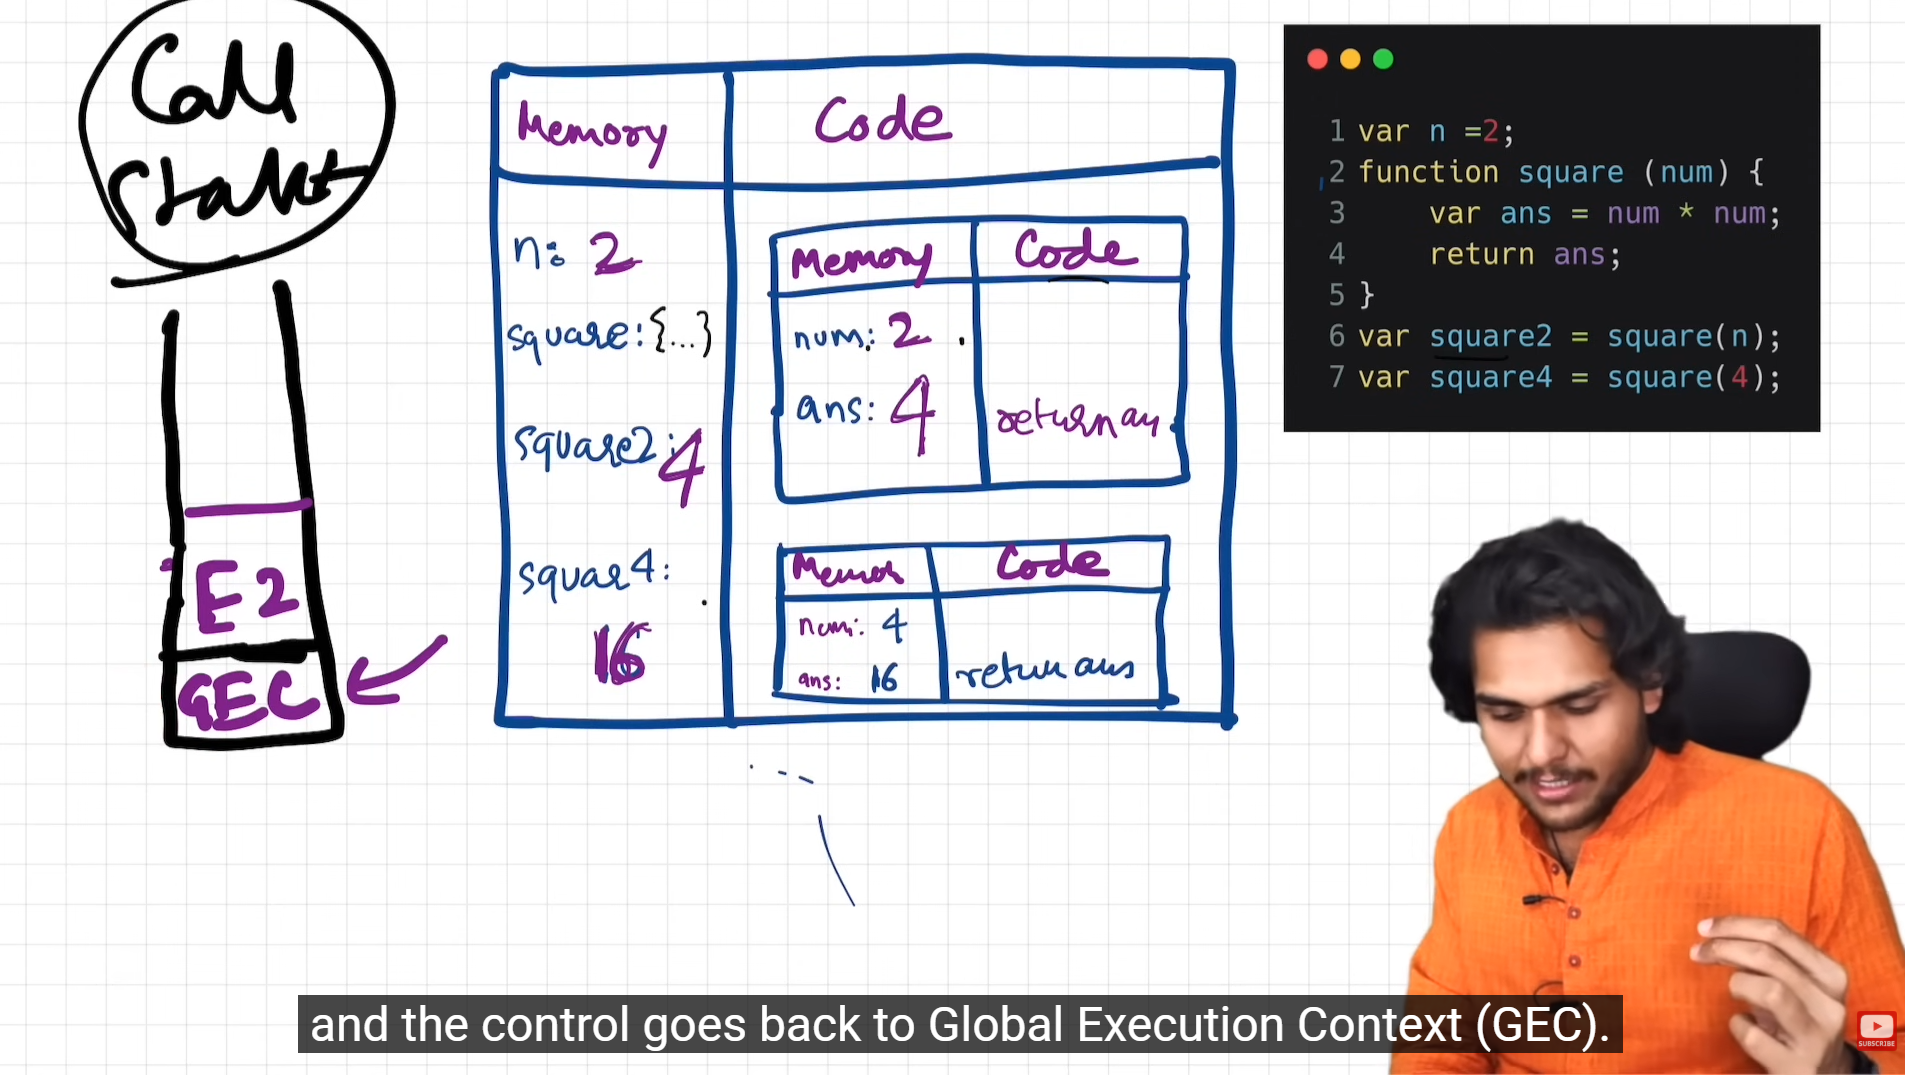 Call
Stack
E2
GEC
Memory
Code
n: 2
square: {...}
square2: 4
squar4:
16
Memory
Code
num: 2
ans: 4
return an
Code
num: 4
ans: 16
return ans
1 var n =2;
2 function square (num) {
3 var ans = num * num;
4 return ans;
5 }
6 var square2 = square(n);
7 var square4 = square(4);
and the control goes back to Global Execution Context (GEC).
SUBSCRIBE